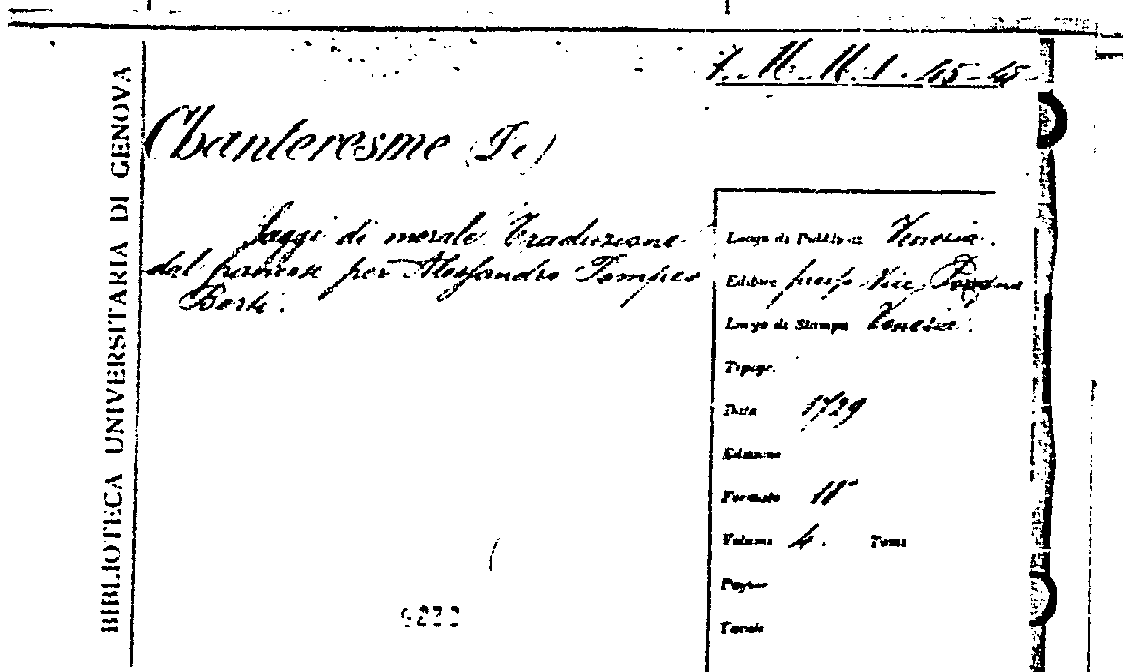 7. M. M. 1. 45-48
BIBLIOTECA UNIVERSITARIA DI GENOVA
Chanteresme (De)
Saggi di morale Traduzione
dal francese per Alessandro Pompeo
Berti.
Luogo di Pubblicaz. Venezia.
Editore presso Nic Pezzana
Luogo di Stampa Venezia.
Tipogr.
Data 1729
Edizione
Formato
Volume 4. Tomi
Pagine
Tavole